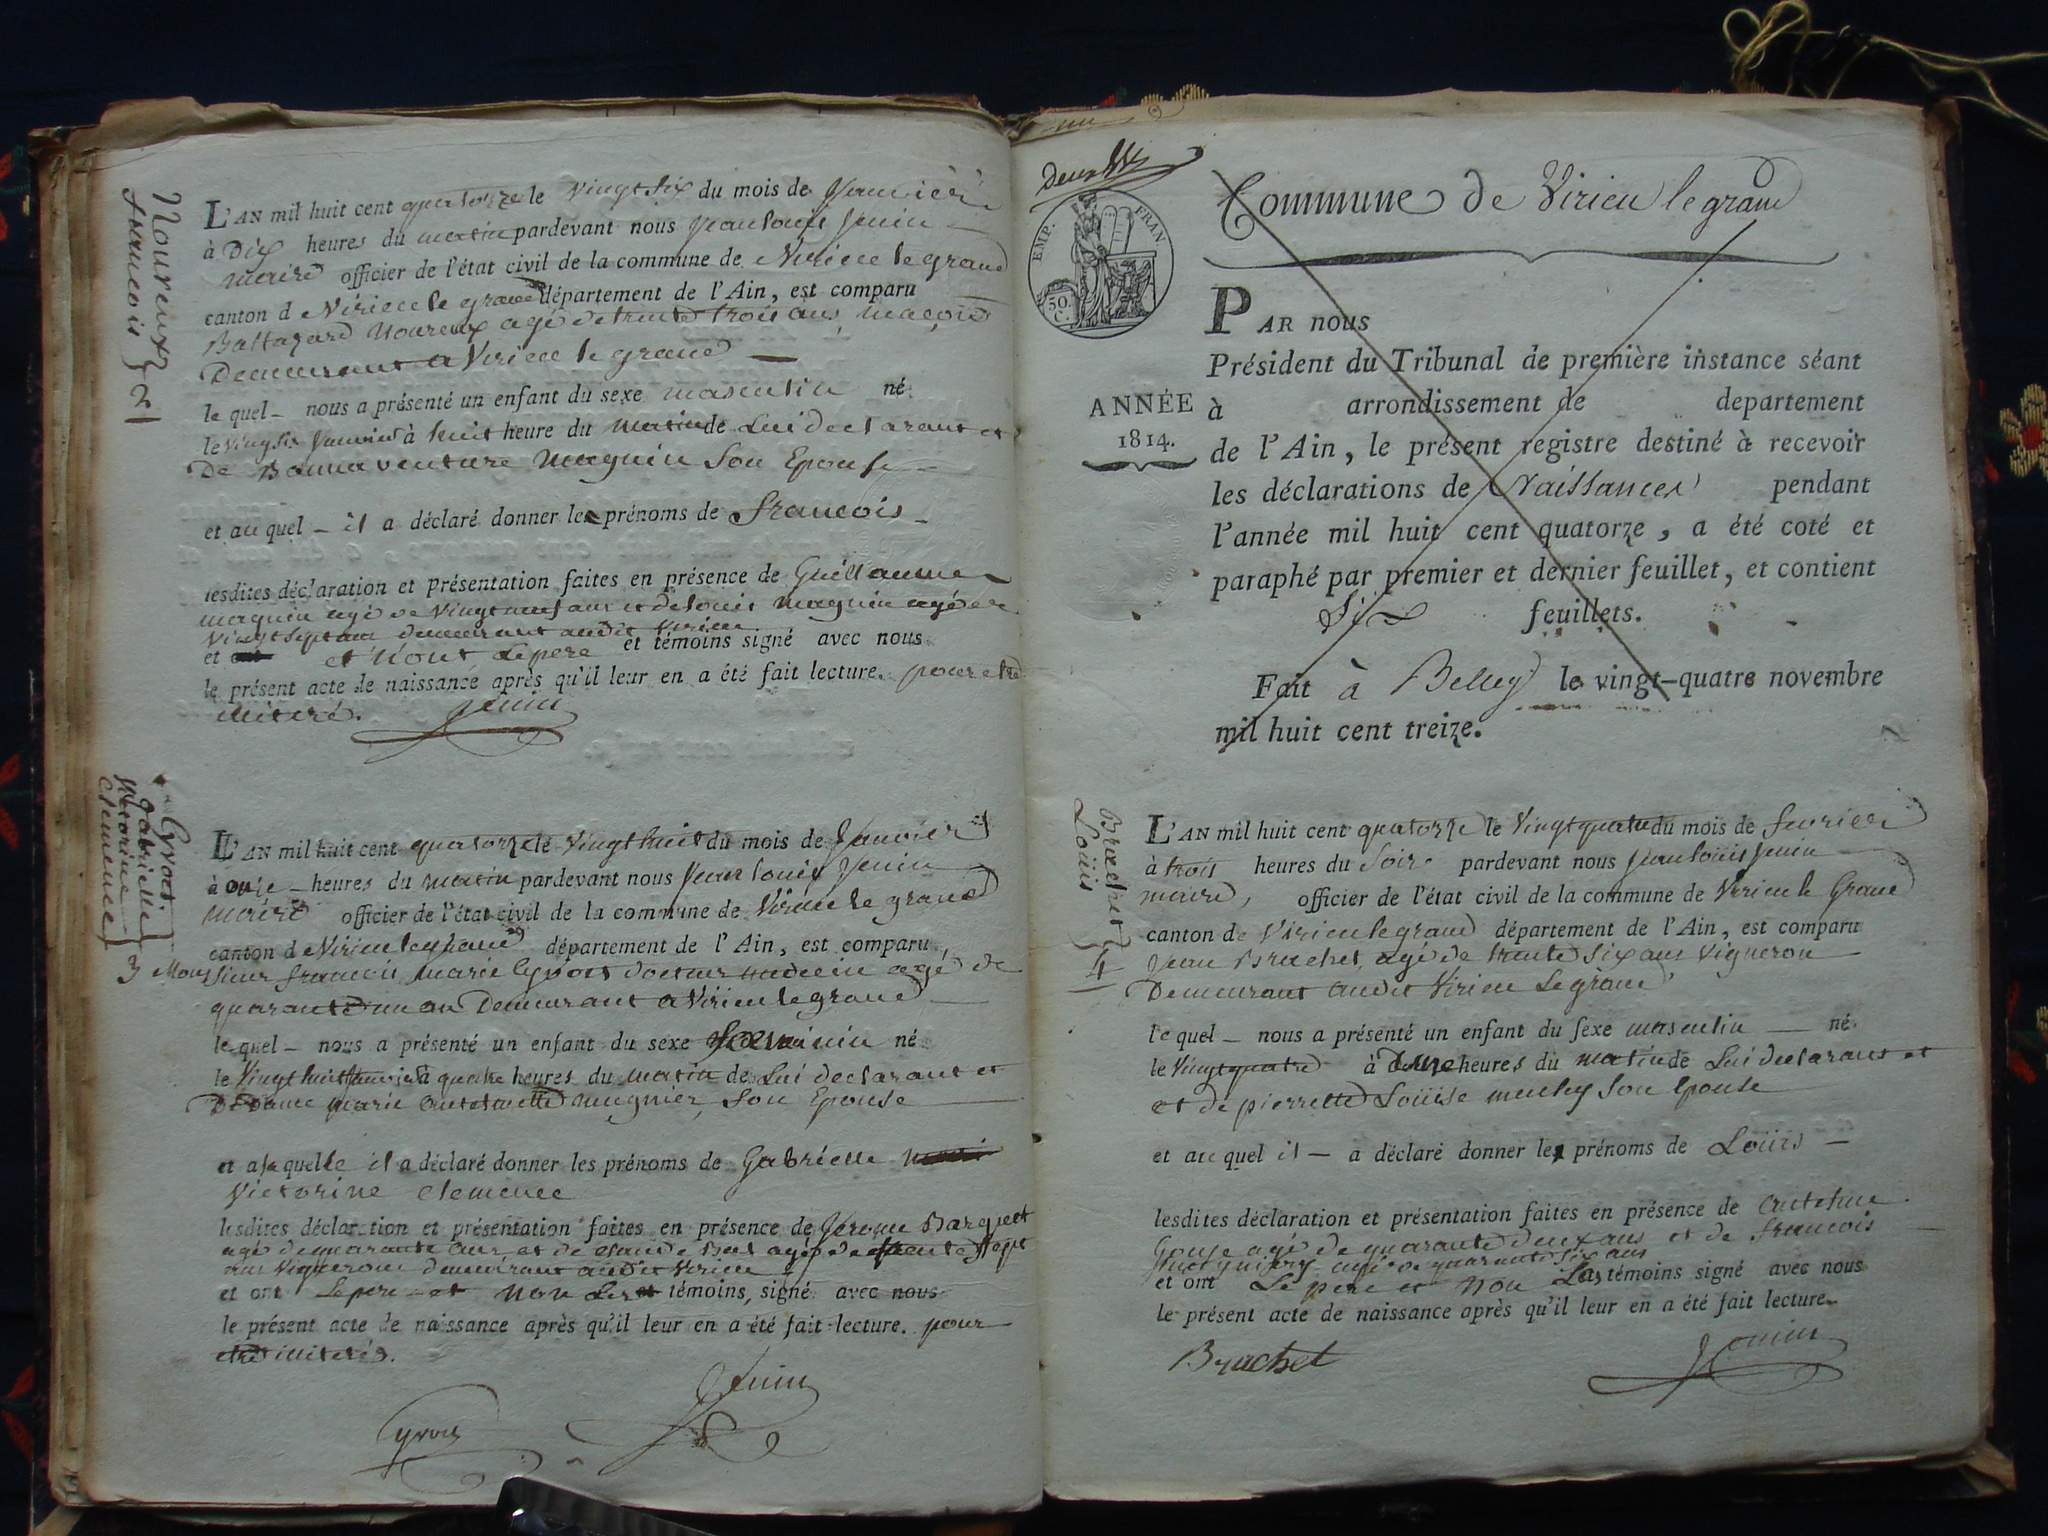 Noureux
francois } 2
L'AN mil huit cent quatorze le vingt six du mois de Janvier
à Dix heures du matin pardevant nous Jean louis Jenin
maire officier de l'état civil de la commune de Virieu le grand
canton d Virieu le grand département de l'Ain, est comparu
Baltazard Noureux agé de trente trois ans macon
Demeurant a Virieu le grand
le quel nous a présenté un enfant du sexe masculin né
le vingt six Janvier à huit heure du matin de Lui declarant et
De Bonnaventure Magnin Son Epouse
et au quel il a déclaré donner les prénoms de francois
lesdites déclaration et présentation faites en présence de Guillaume
magnin agé de vingt neuf ans et de louis magnin agé de
vingt sept ans demeurant audit Virieu
et ont et n'ont Le pere et témoins signé avec nous
le présent acte de naissance après qu'il leur en a été fait lecture. pour etre
illiteré.
Jenin
Cyvoct
gabrielle
Victorine
Clemence } 3
L'AN mil huit cent quatorze le vingt huit du mois de Janvier
à onze heures du matin pardevant nous Jean louis Jenin
maire officier de l'état civil de la commune de Virieu le grand
canton d Virieu le grand département de l'Ain, est comparu
Monsieur francois marie Cyvoct docteur medecin agé de
quarante un an Demeurant a Virieu le grand
le quel nous a présenté un enfant du sexe feminin né
le vingt huit Janvier à quatre heures du matin de Lui declarant et
De Dame marie antelmette mugnier, Son Epouse
et a laquelle il a déclaré donner les prénoms de Gabrielle
Victorine Clemence
lesdites déclaration et présentation faites en présence de Jerome
agé de quarante ans et de claude agé de trente sept
ans Vignerons demeurant audit Virieu
et ont Le pere et non Les témoins, signé avec nous
le présent acte de naissance après qu'il leur en a été fait lecture. pour
etre illiterés.
Jenin
Cyvoct
EMP. FRAN
50. C.
Commune de Virieu le grand
PAR nous
Président du Tribunal de première instance séant
ANNÉE
1814.
à arrondissement de departement
de l'Ain, le présent registre destiné à recevoir
les déclarations de Naissances pendant
l'année mil huit cent quatorze, a été coté et
paraphé par premier et dernier feuillet, et contient
Six feuillets.
Fait à Belley le vingt-quatre novembre
mil huit cent treize.
Brachet
Louis } 4
L'AN mil huit cent quatorze le vingt quatre du mois de fevrier
à trois heures du Soir pardevant nous Jean louis Jenin
maire, officier de l'état civil de la commune de Virieu le Grand
canton de Virieu le grand département de l'Ain, est comparu
Jean Brachet agé de trente Six ans Vigneron
Demeurant audit Virieu Le grand
le quel nous a présenté un enfant du sexe masculin né
le vingt quatre à heures du matin de Lui declarant et
et de pierrette Louise Son Epouse
et au quel il a déclaré donner les prénoms de Louis
lesdites déclaration et présentation faites en présence de antelme
Gouje agé de quarante deux ans et de francois
agé de quarante six ans
et ont Le pere et non Les témoins signé avec nous
le présent acte de naissance après qu'il leur en a été fait lecture.
Brachet
Jenin